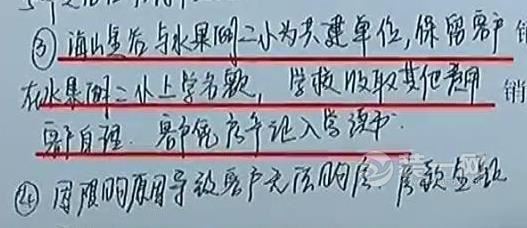 ③ 海山是否与水果湖二小为共建单位,保留客户
在水果湖二小上学名额, 学校收取其他费用
客户自理. 客户凭房产证入学读书.
④ 因限购原因导致客户无法购房 房款全额
销
装一网